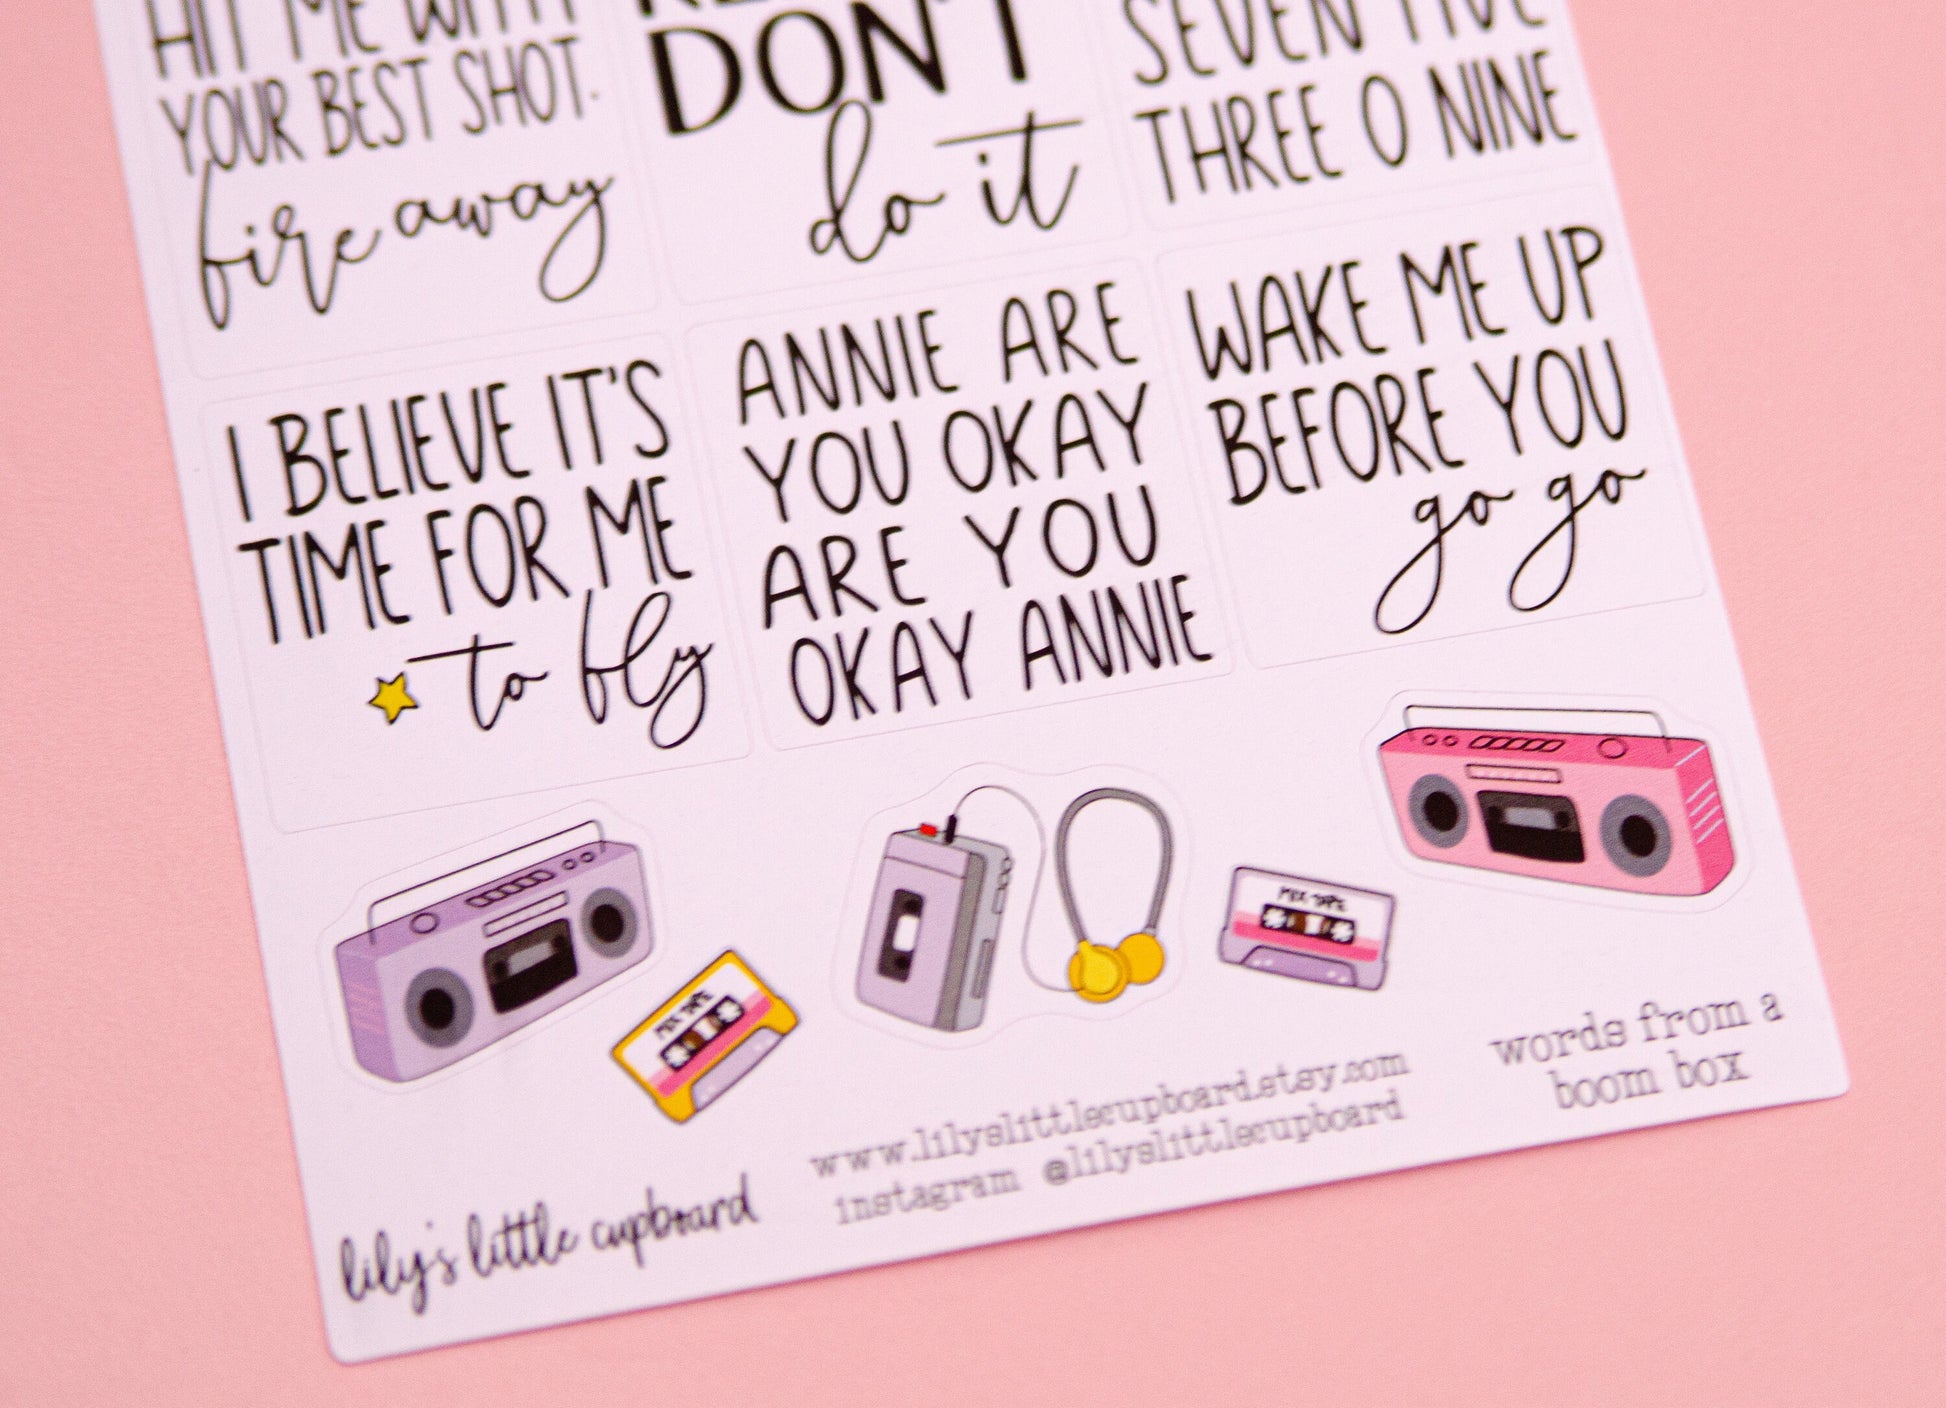 HIT ME WITH
YOUR BEST SHOT.
fire away
DON'T
do it
SEVEN FIVE
THREE O NINE
I BELIEVE IT'S
TIME FOR ME
to fly
ANNIE ARE
YOU OKAY
ARE YOU
OKAY ANNIE
WAKE ME UP
BEFORE YOU
go go
MIX TAPE
MIX TAPE
lily's little cupboard
www.lilyslittlecupboard.etsy.com
instagram @lilyslittlecupboard
words from a
boom box